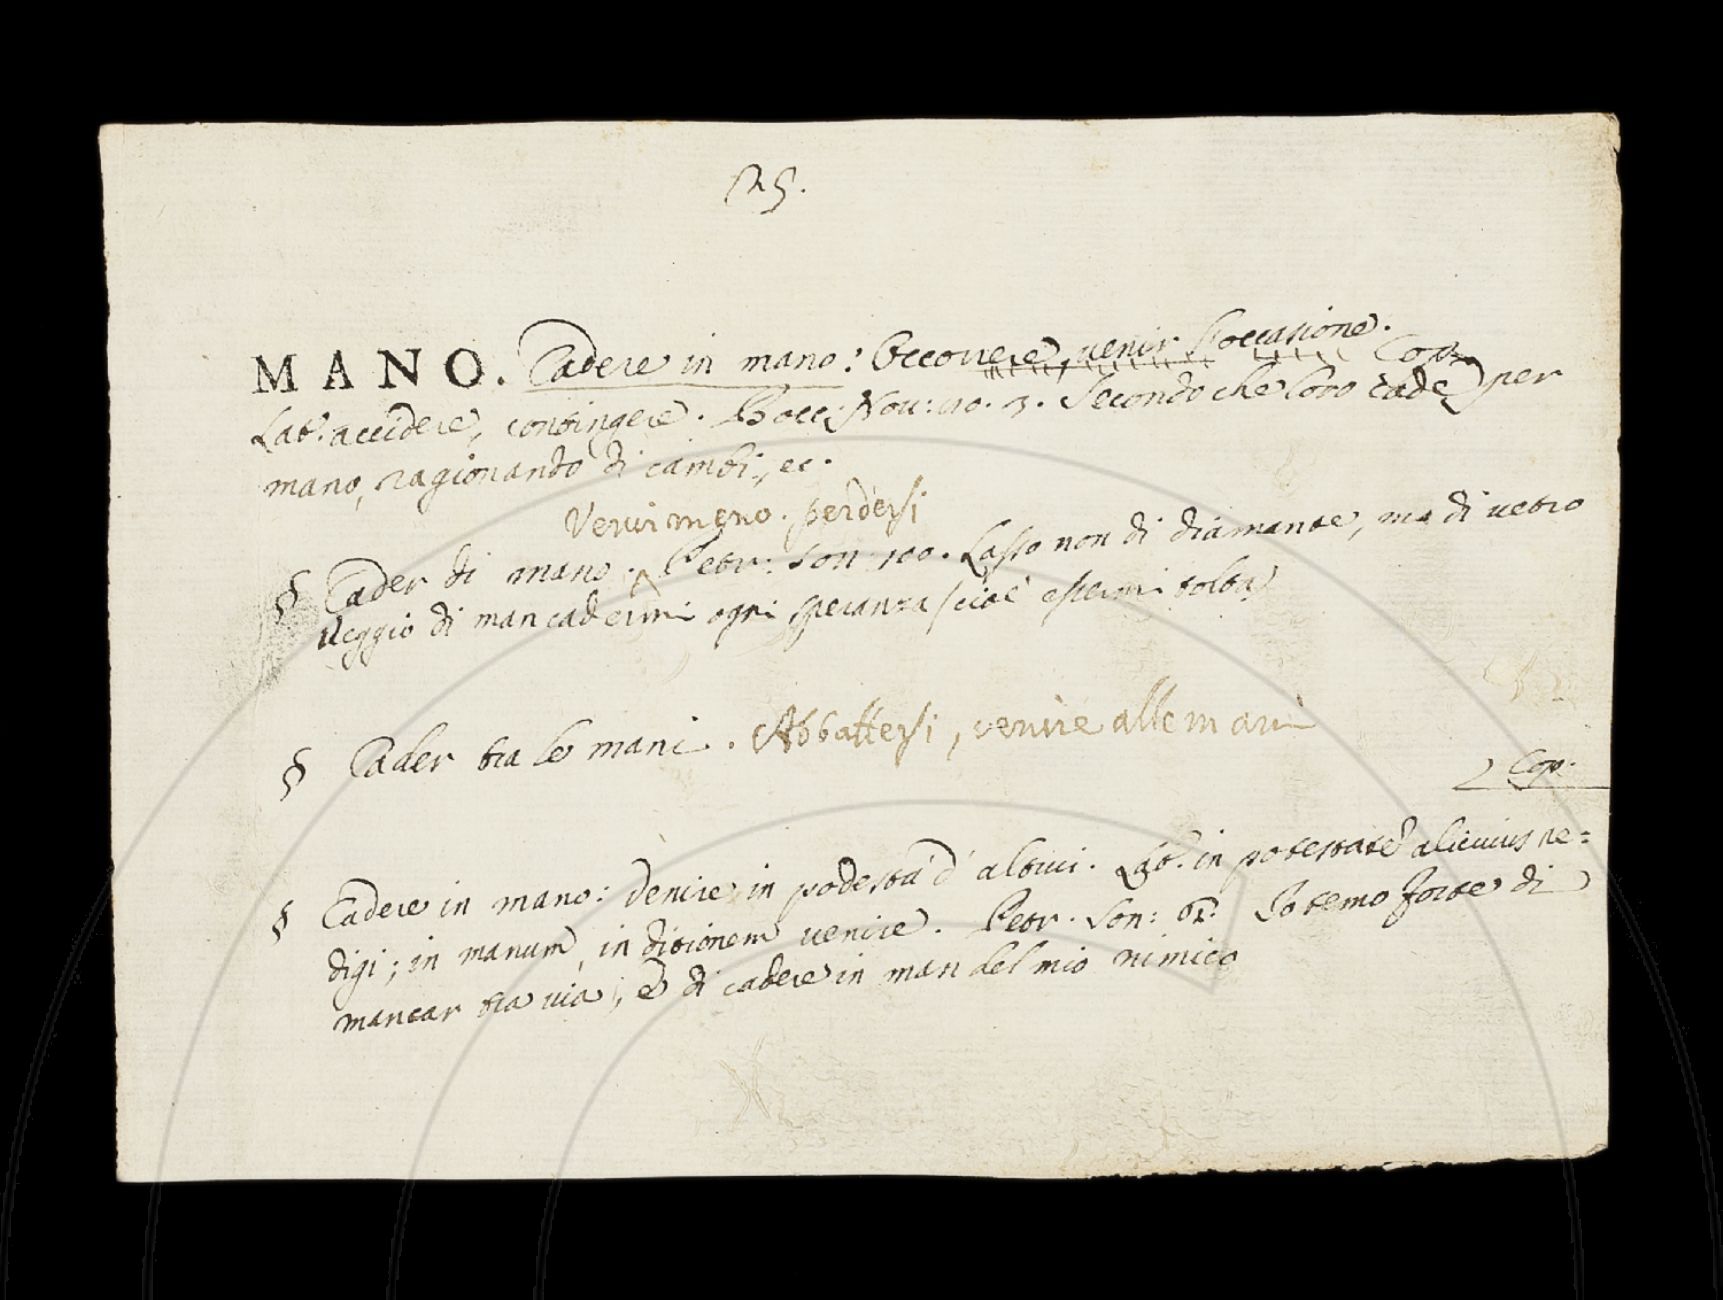 25.
MANO. Cadere in mano: Occorrere, venir l'occasione.
Cop.
Lat. accidere, contingere. Bocc: Nov: 10. 3. Secondo che loro cade per
mano, ragionando di cambi, ec.
Venir meno. perdersi
§ Cader di mano. Petr: Son: 100. Lasso non di diamante, ma di vetro
Veggio di man cadermi ogni speranza (cioè essermi tolta)
§ Cader tra le mani. Abbattersi, venire alle mani
2 Cop.
§ Cadere in mano: Venire in podestà d' altrui. Lat. in potestate alicuius re=
digi; in manum, in ditionem venire. Petr. Son: Io temo forte di
mancar tra via, e di cadere in man del mio nimico